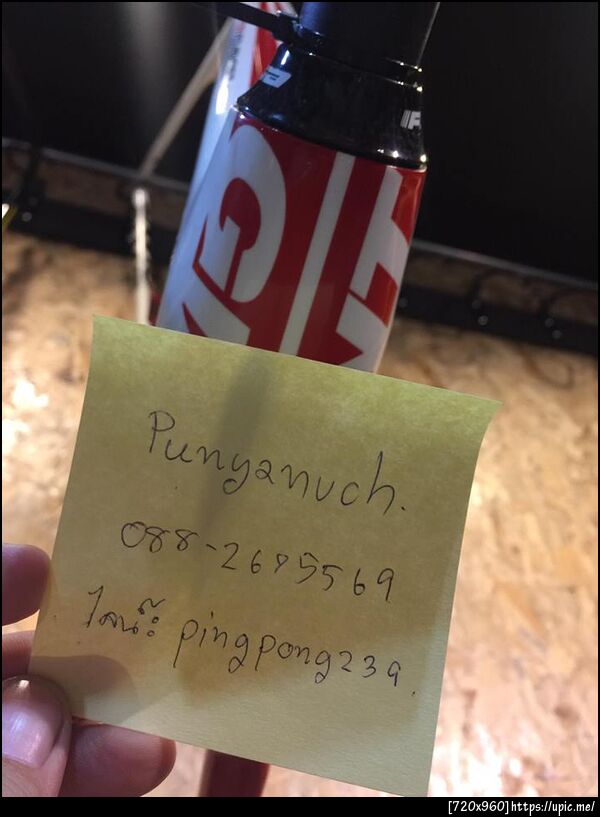 Punyanuch.
088-2685569
ไลน์: pingpong239.
[720x960]https://upic.me/